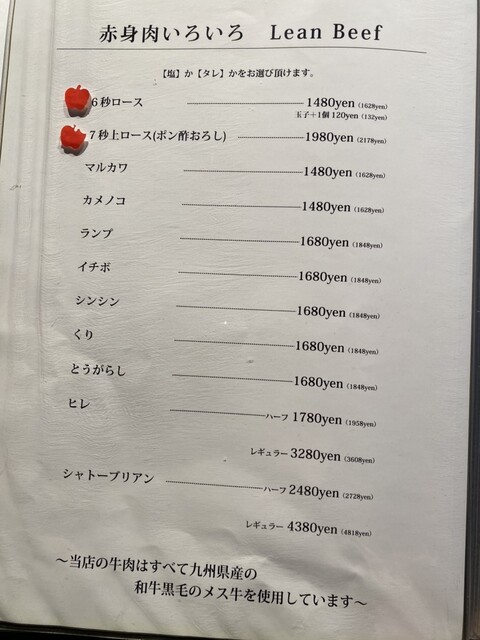 赤身肉いろいろ Lean Beef
【塩】か【タレ】かをお選び頂けます。
6秒ロース 1480yen (1628yen)
玉子+1個 120yen (132yen)
7秒上ロース(ポン酢おろし) 1980yen (2178yen)
マルカワ 1480yen (1628yen)
カメノコ 1480yen (1628yen)
ランプ 1680yen (1848yen)
イチボ 1680yen (1848yen)
シンシン 1680yen (1848yen)
くり 1680yen (1848yen)
とうがらし 1680yen (1848yen)
ヒレ ハーフ 1780yen (1958yen)
レギュラー 3280yen (3608yen)
シャトーブリアン ハーフ 2480yen (2728yen)
レギュラー 4380yen (4818yen)
〜当店の牛肉はすべて九州県産の
和牛黒毛のメス牛を使用しています〜